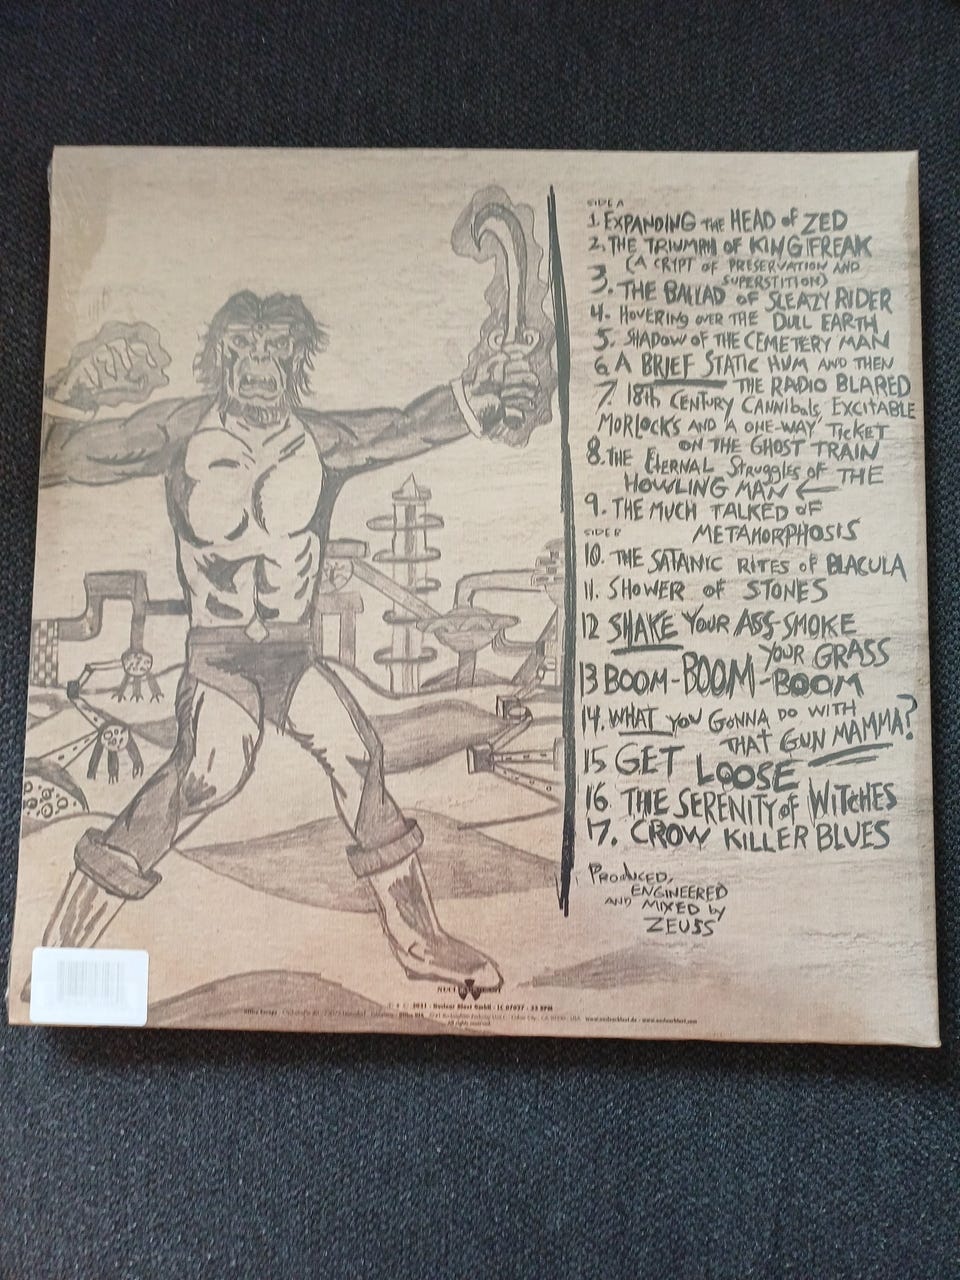 SIDE A
1. EXPANDING THE HEAD OF ZED
2. THE TRIUMPH OF KING FREAK
(A CRYPT OF PRESERVATION AND
SUPERSTITION)
3. THE BALLAD OF SLEAZY RIDER
4. HOVERING OVER THE DULL EARTH
5. SHADOW OF THE CEMETERY MAN
6. A BRIEF STATIC HUM AND THEN
THE RADIO BLARED
7. 18th CENTURY CANNIBALS, EXCITABLE
MORLOCKS AND A ONE-WAY TICKET
ON THE GHOST TRAIN
8. THE ETERNAL STRUGGLES OF THE
HOWLING MAN ←
9. THE MUCH TALKED OF
METAMORPHOSIS
SIDE B
10. THE SATANIC RITES OF BLACULA
11. SHOWER OF STONES
12 SHAKE YOUR ASS-SMOKE
YOUR GRASS
13 BOOM-BOOM-BOOM
14. WHAT YOU GONNA DO WITH
THAT GUN MAMMA?
15 GET LOOSE
16. THE SERENITY OF WITCHES
17. CROW KILLER BLUES
PRODUCED,
ENGINEERED
AND MIXED by
ZEUSS
2021 · Nuclear Blast GmbH · LC 07027 · 33 RPM
www.nuclearblast.de · www.nuclearblast.com
All rights reserved